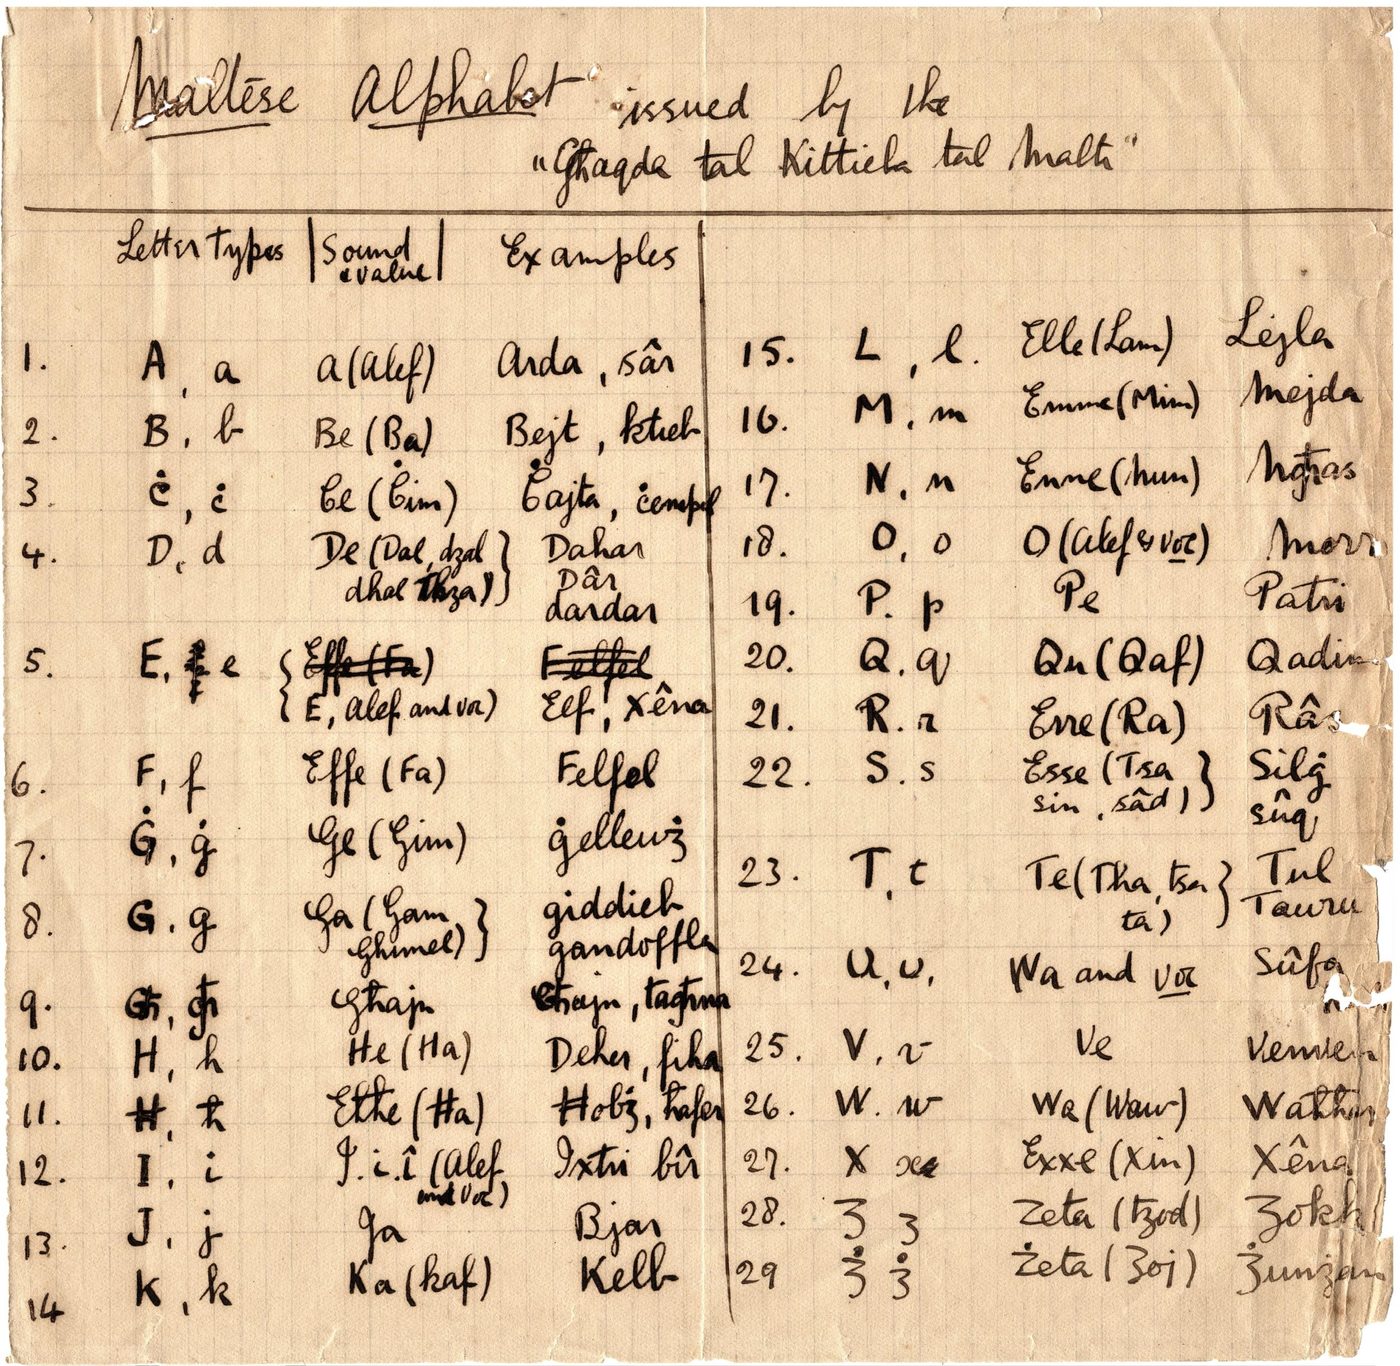 Maltese Alphabet issued by the
"Għaqda tal Kittieba tal Malti"
Letter Types | Sound & value | Examples
1. A, a A (Alef) Arda, sâr
2. B, b Be (Ba) Bejt, ktieb
3. Ċ, ċ Ċe (Ċim) Ċajta, ċempel
4. D, d De (Dal, dzal Dahar
dhal thza) } Dâr
dardar
5. E, e { Effe (Fa) Felfel
{ E, Alef and voc) Elf, Xêna
6. F, f Effe (Fa) Felfel
7. Ġ, ġ Ge (Gim) ġellewż
8. G, g Ga (Gam giddieb
Ghimel) } gandoffla
9. Għ, għ Għajn Għajn, tagħna
10. H, h He (Ha) Deher, fiha
11. Ħ, ħ Eħħe (Ħa) Ħobż, ħafer
12. I, i I. i. î (Alef Ixtri bîr
and voc)
13. J, j Ja Bjar
14 K, k Ka (kaf) Kelb
15. L, l. Elle (Lam) Lejla
16. M, m Emme (Mim) Mejda
17. N, n Enne (Nun) Ngħas
18. O, o O (Alef & voc)
19. P. p Pe Patri
20. Q. q Qu (Qaf)
21. R. r Erre (Ra) Râs
22. S. s Esse (Tsa } Silġ
sin, sâd) sûq
23. T, t Te (Tha, tsa } Tul
ta)
24. U, u, Wa and voc Sûfa
25. V, v Ve
26. W. w Wa (Waw)
27. X x Exxe (Xin) Xêna
28. Ʒ ʒ Zeta (tzod) Ʒokk
29 Ʒ̇ ʒ̇ Żeta (Ʒoj) Ʒ̇unʒ̇an